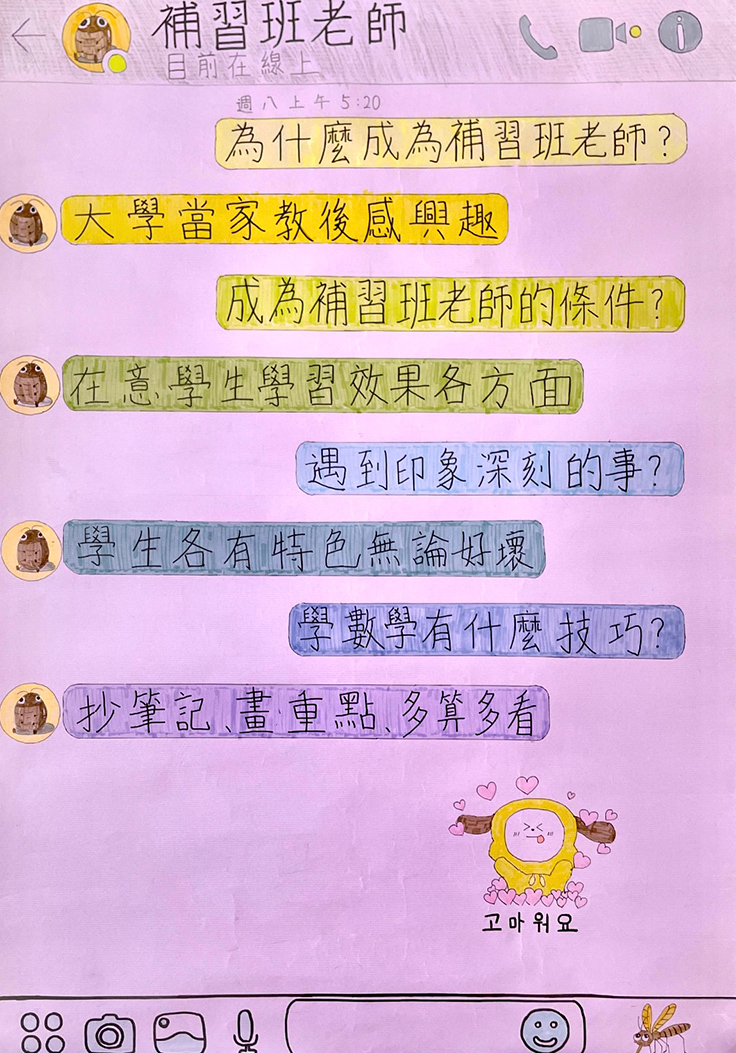 補習班老師
目前在線上
週八上午5:20
為什麼成為補習班老師?
大學當家教後感興趣
成為補習班老師的條件?
在意學生學習效果各方面
遇到印象深刻的事?
學生各有特色無論好壞
學數學有什麼技巧?
抄筆記、畫重點、多算多看
고마워요